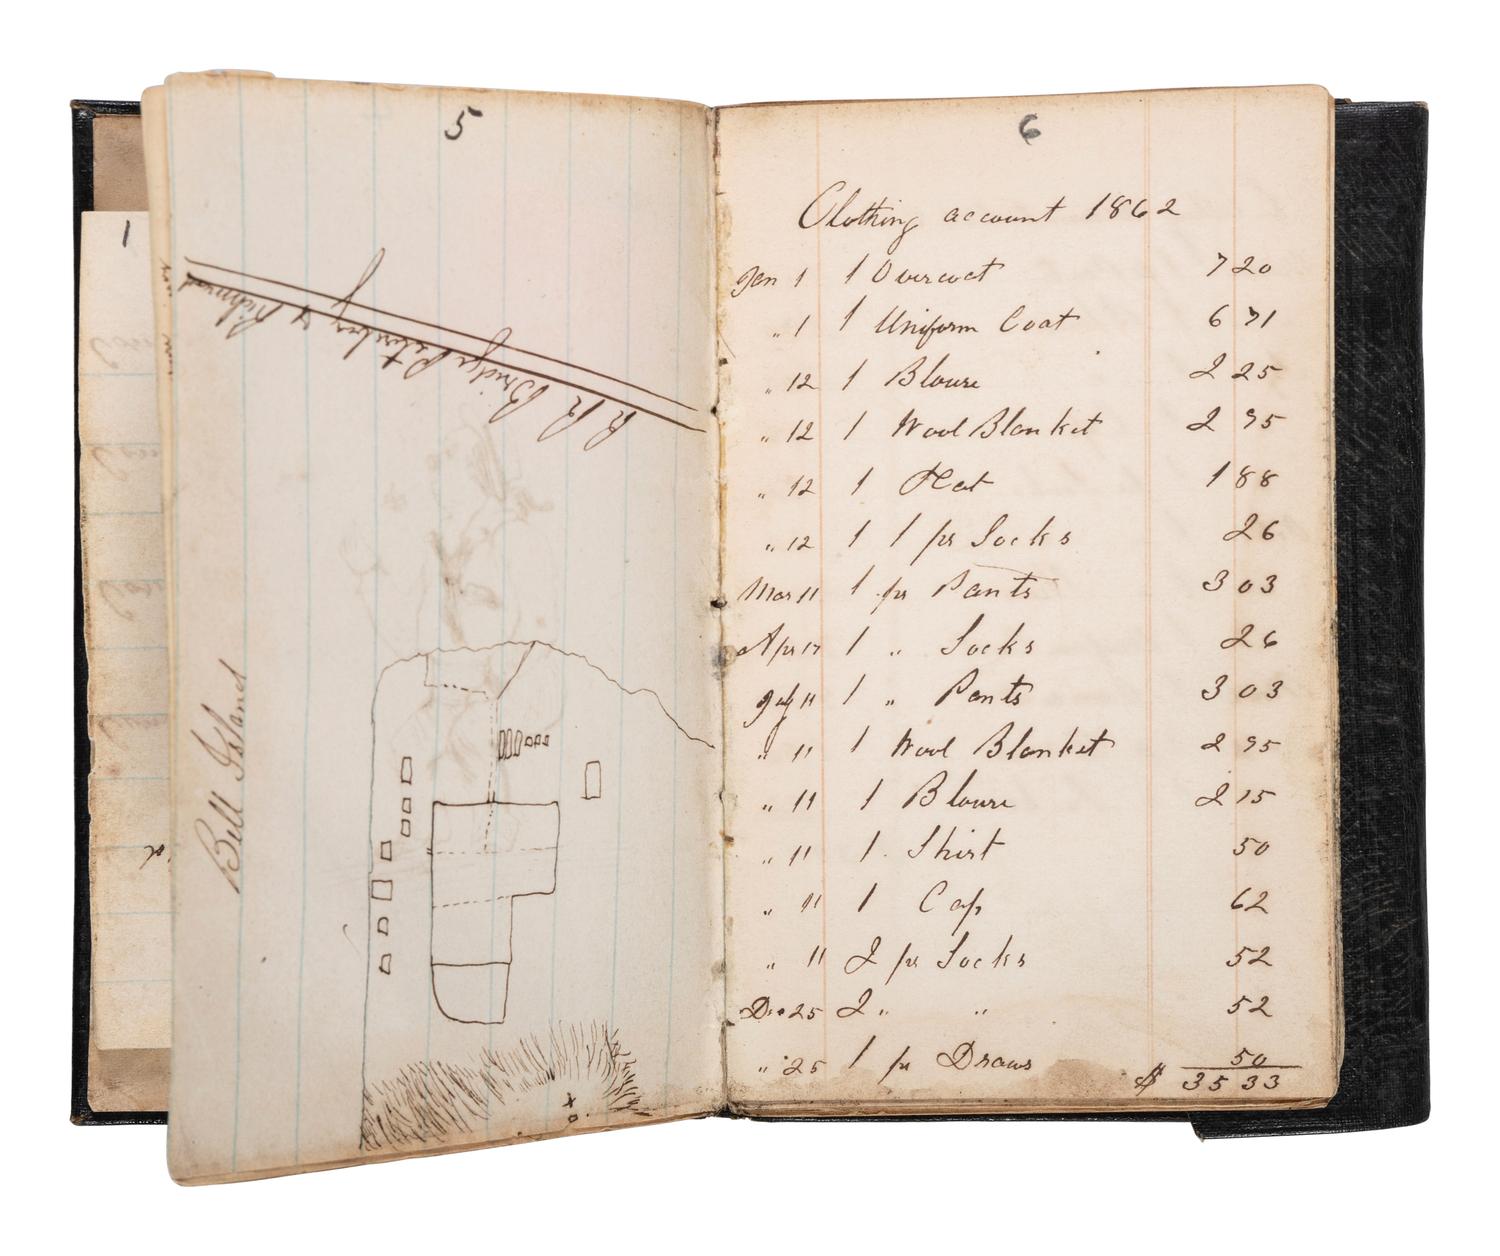 1
5
R R Bridge Petersburg & Richmond
Bell Island
6
Clothing account 1862
Jan 1 1 Overcoat 7 20
" 1 1 Uniform Coat 6 71
" 12 1 Blouse 2 25
" 12 1 Wool Blanket 2 95
" 12 1 Hat 1 88
" 12 1 1 pr Socks 26
Mar 11 1 pr Pants 3 03
Apr 17 1 " Socks 26
July 11 1 " Pants 3 03
" 11 1 Wool Blanket 2 95
" 11 1 Blouse 2 15
" 11 1 Shirt 50
" 11 1 Cap 62
" 11 2 pr Socks 52
Dec 25 2 " " 52
" 25 1 pr Draws 50
$ 35 33